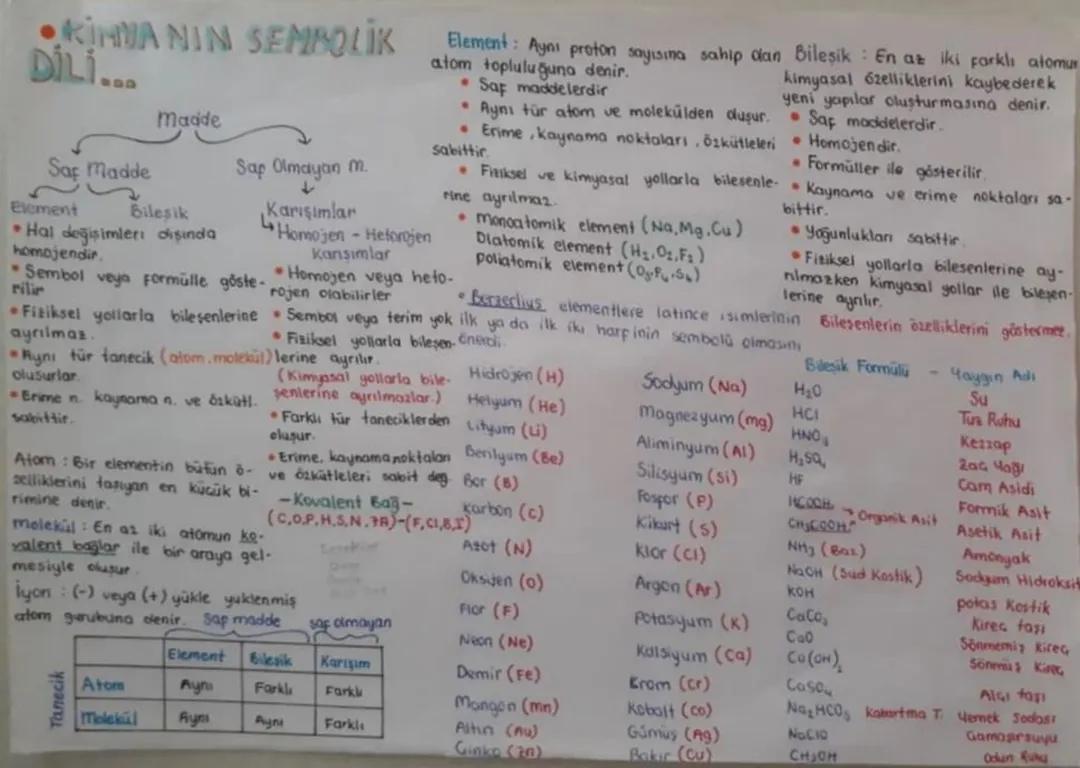 • KİMYANIN SEMBOLİK
DİLİ...
Madde
Saf Madde
Saf Olmayan M.
Element
Bileşik
Karışımlar
Homojen - Heterojen
Karışımlar
• Hal değişimleri dışında
homojendir.
• Sembol veya formülle göste-
rilir
• Fiziksel yollarla bileşenlerine
ayrılmaz.
• Aynı tür tanecik (atom, molekül)
oluşurlar.
• Erime n. kaynama n. ve özkütl.
sabittir.
• Homojen veya hete-
rojen olabilirler
• Sembol veya terim yok
• Fiziksel yollarla bileşen-
lerine ayrılır.
(Kimyasal yollarla bile-
şenlerine ayrılmazlar.)
• Farklı tür taneciklerden
oluşur.
• Erime, kaynama noktaları
ve özkütleleri sabit değ
- Kovalent Bağ -
(C,O,P,H,S,N,7A)-(F,Cl,B,I)
Atom : Bir elementin bütün ö-
zelliklerini taşıyan en küçük bi-
rimine denir.
Molekül : En az iki atomun ko-
valent bağlar ile bir araya gel-
mesiyle oluşur.
İyon : (-) veya (+) yükle yüklenmiş
atom gurubuna denir.
Saf madde
saf olmayan
Element Bileşik Karışım
Tanecik
Atom Aynı Farklı Farklı
Molekül Aynı Aynı Farklı
Element : Aynı proton sayısına sahip olan
atom topluluğuna denir.
• Saf maddelerdir
• Aynı tür atom ve molekülden oluşur.
• Erime, kaynama noktaları, özkütleleri
sabittir.
• Fiziksel ve kimyasal yollarla bileşenle-
rine ayrılmaz.
• Monoatomik element (Na,Mg,Cu)
Diatomik element (H₂,O₂,F₂)
poliatomik element (O₃,P₄,S₈)
• Berzerlius elementlere latince isimlerinin
ilk ya da ilk iki harfinin sembolü olmasını
önerdi.
Bileşik : En az iki farklı atomun
kimyasal özelliklerini kaybederek
yeni yapılar oluşturmasına denir.
• Saf maddelerdir.
• Homojendir.
• Formüller ile gösterilir.
• Kaynama ve erime noktaları sa-
bittir.
• Yoğunlukları sabittir.
• Fiziksel yollarla bileşenlerine ay-
rılmazken kimyasal yollar ile bileşen-
lerine ayrılır.
Bileşenlerin özelliklerini göstermez.
Hidrojen (H)
Helyum (He)
Lityum (Li)
Berilyum (Be)
Bor (B)
Karbon (C)
Azot (N)
Oksijen (O)
Flor (F)
Neon (Ne)
Demir (Fe)
Mangan (mn)
Altın (Au)
Çinko (Zn)
Sodyum (Na)
Magnezyum (mg)
Aliminyum (Al)
Silisyum (Si)
Fosfor (P)
Kükurt (S)
Klor (Cl)
Argon (Ar)
Potasyum (K)
Kalsiyum (Ca)
Krom (Cr)
Kobalt (Co)
Gümüş (Ag)
Bakır (Cu)
Bileşik Formülü - Yaygın Adı
H₂O Su
HCl Tuz Ruhu
HNO₃ Kezzap
H₂SO₄ Zaç Yağı
HF Cam Asidi
HCOOH → Organik Asit Formik Asit
CH₃COOH Asetik Asit
NH₃ (Baz) Amonyak
NaOH (Sud Kostik) Sodyum Hidroksit
KOH potas Kostik
CaCO₃ Kireç taşı
CaO Sönmemiş Kireç
Ca(OH)₂ Sönmüş Kireç
CaSO₄ Alçı taşı
Na₂HCO₃ Kabartma T. Yemek Sodası
NaClO Çamaşırsuyu
CH₃OH Odun Ruhu